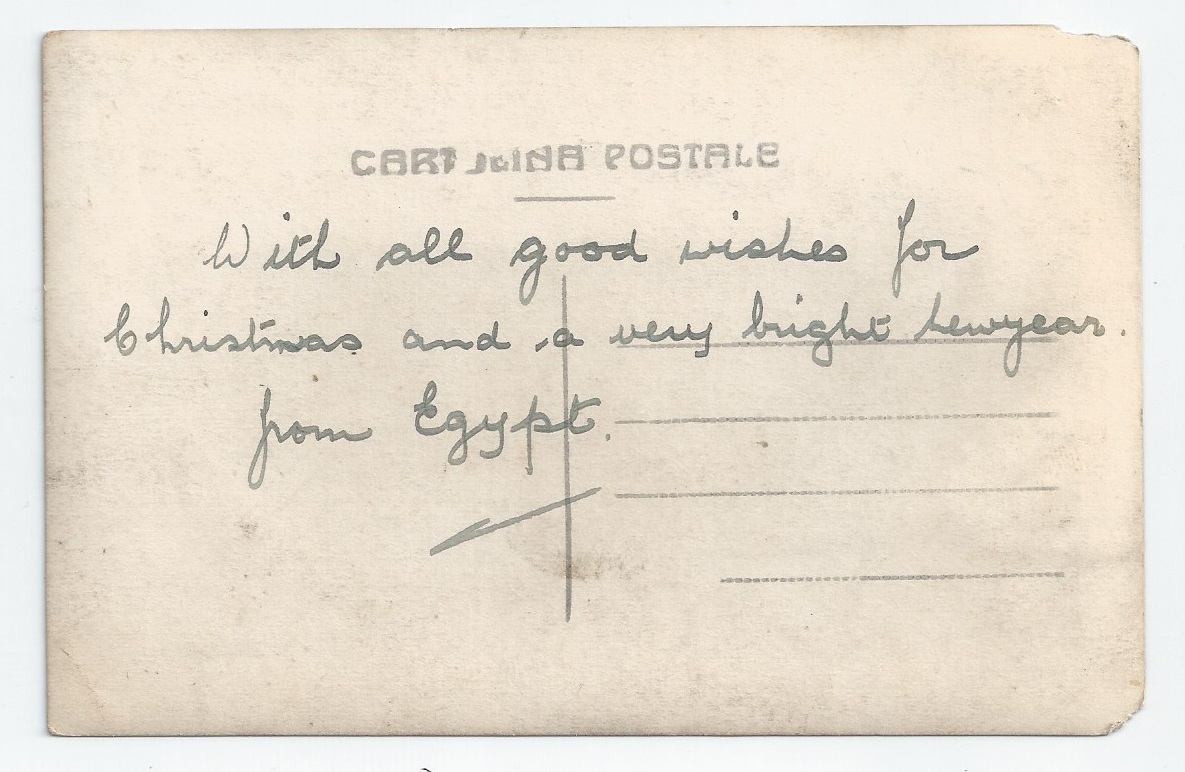 CARTOLINA POSTALE
With all good wishes for
Christmas and a very bright newyear.
from Egypt.